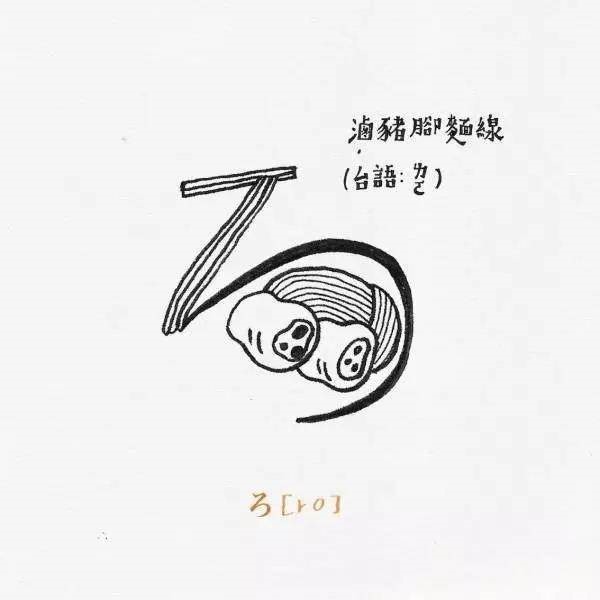 滷豬腳麵線
(台語:ㄌㄛ)
ろ[ro]